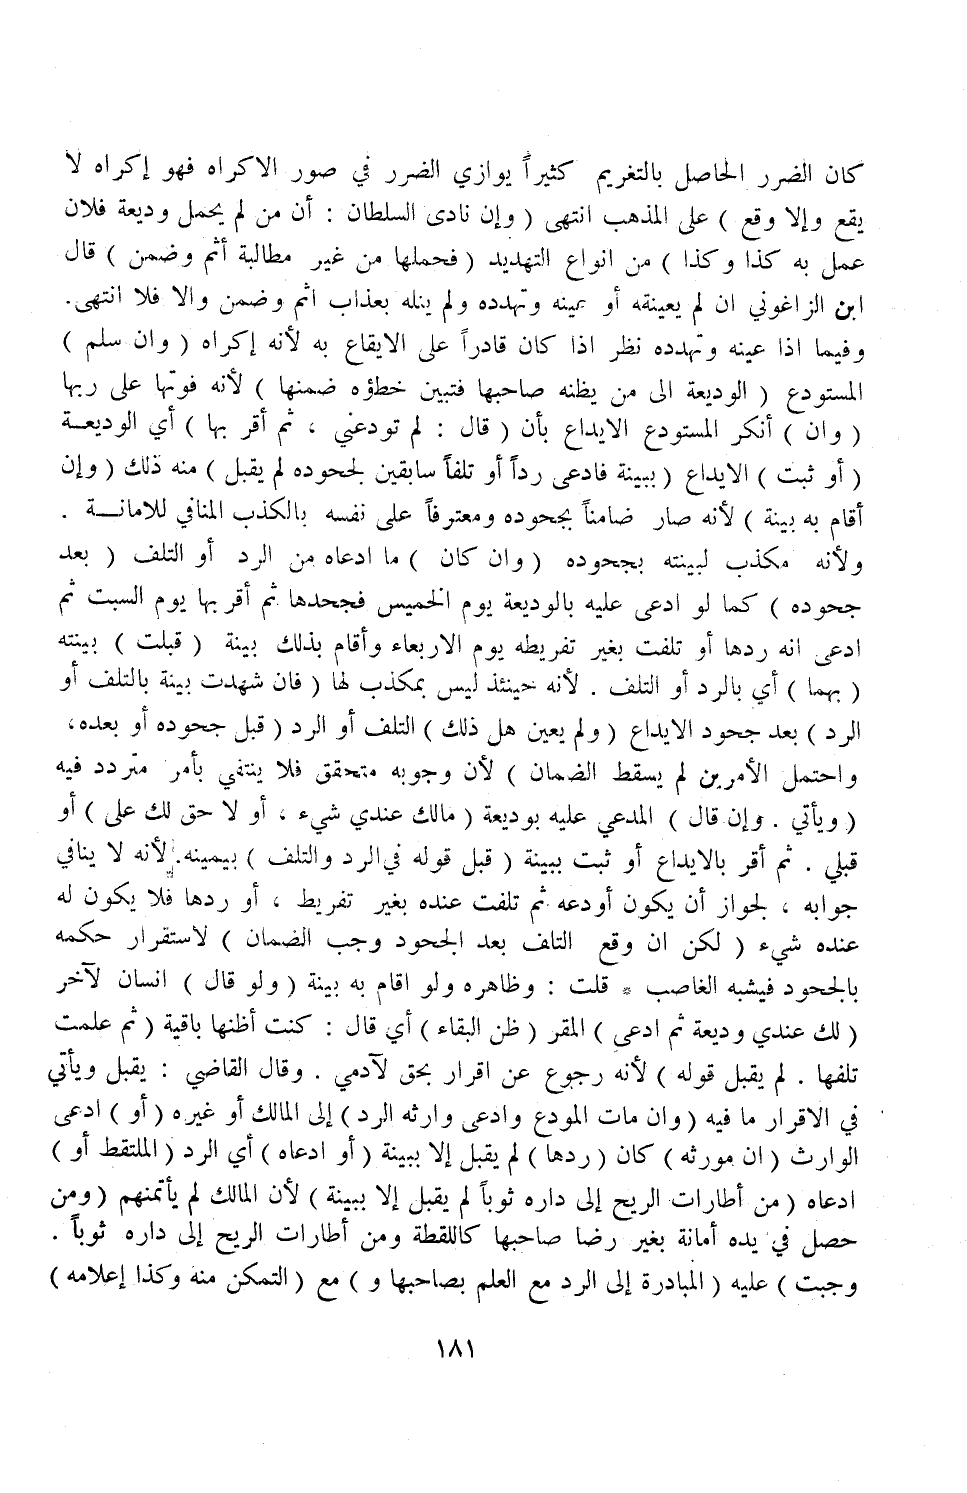 كان الضرر الحاصل بالتغريم كثيراً يوازي الضرر في صور الاكراه فهو إكراه لا
يقع وإلا وقع ) على المذهب انتهى ( وإن نادى السلطان : أن من لم يحمل وديعة فلان
عمل به كذا وكذا ) من انواع التهديد ( فحملها من غير مطالبة أثم وضمن ) قال
ابن الزاغوني ان لم يعينه أو عينه وتهدده ولم ينله بعذاب اثم وضمن والا فلا انتهى.
وفيما اذا عينه وتهدده نظر اذا كان قادراً على الايقاع به لأنه إكراه ( وان سلم )
المستودع ( الوديعة الى من يظنه صاحبها فتبين خطؤه ضمنها ) لأنه فوتها على ربها
( وان ) أنكر المستودع الايداع بأن ( قال : لم تودعني ، ثم أقر بها ) أي الوديعــة
( أو ثبت ) الايداع ( ببينة فادعى رداً أو تلفاً سابقين لجحوده لم يقبل ) منه ذلك ( وإن
أقام به بينة ) لأنه صار ضامناً بجحوده ومعترفاً على نفسه بالكذب المنافي للامانــة .
ولأنه مكذب لبينته بجحوده ( وان كان ) ما ادعاه من الرد أو التلف ( بعد
جحوده ) كما لو ادعى عليه بالوديعة يوم الخميس فجحدها ثم أقر بها يوم السبت ثم
ادعى انه ردها أو تلفت بغير تفريطه يوم الاربعاء وأقام بذلك بينة ( قبلت ) بينته
( بهما ) أي بالرد أو التلف . لأنه حينئذ ليس بمكذب لها ( فان شهدت بينة بالتلف أو
الرد ) بعد جحود الايداع ( ولم يعين هل ذلك ) التلف أو الرد ( قبل جحوده أو بعده،
واحتمل الأمرين لم يسقط الضمان ) لأن وجوبه متحقق فلا ينتفي بأمر متردد فيه
( ويأتي . وإن قال ) المدعي عليه بوديعة ( مالك عندي شيء ، أو لا حق لك على ) أو
قبلي . ثم أقر بالايداع أو ثبت ببينة ( قبل قوله في الرد والتلف ) بيمينه. لأنه لا ينافي
جوابه ، لجواز أن يكون أودعه ثم تلفت عنده بغير تفريط ، أو ردها فلا يكون له
عنده شيء ( لكن ان وقع التلف بعد الجحود وجب الضمان ) لاستقرار حكمه
بالجحود فيشبه الغاصب * قلت : وظاهره ولو اقام به بينة ( ولو قال ) انسان لآخر
( لك عندي وديعة ثم ادعى ) المقر ( ظن البقاء ) أي قال : كنت أظنها باقية ( ثم علمت
تلفها . لم يقبل قوله ) لأنه رجوع عن اقرار بحق لآدمي . وقال القاضي : يقبل ويأتي
في الاقرار ما فيه ( وان مات المودع وادعى وارثه الرد ) إلى المالك أو غيره ( أو ) ادعى
الوارث ( ان مورثه ) كان ( ردها ) لم يقبل إلا ببينة ( أو ادعاه ) أي الرد ( الملتقط أو )
ادعاه ( من أطارات الريح إلى داره ثوباً لم يقبل إلا ببينة ) لأن المالك لم يأتمنهم ( ومن
حصل في يده أمانة بغير رضا صاحبها كاللقطة ومن أطارات الريح إلى داره ثوباً .
وجبت ) عليه ( المبادرة إلى الرد مع العلم بصاحبها و ) مع ( التمكن منه وكذا إعلامه )
١٨١